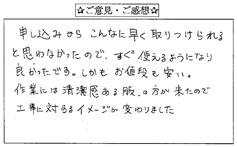 ☆ご意見・ご感想☆
申し込みから こんなに早く 取りつけられる
と思わなかったので、すぐ使えるようになり
良かったです。しかも お値段も 安い。
作業には清潔感ある服の方が来たので
工事に対するイメージが変わりました